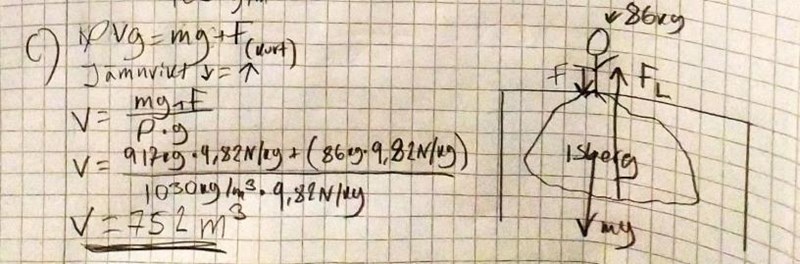 c) ρVg = mg + F (kurt)
Jämnvikt ↓ = ↑
V = mg + F / ρ · g
V = 917kg · 9,82N/kg + (86kg · 9,82N/kg) / 1030kg/m³ · 9,82N/kg
V = 752 m³
86kg
F
F_L
Isberg
mg